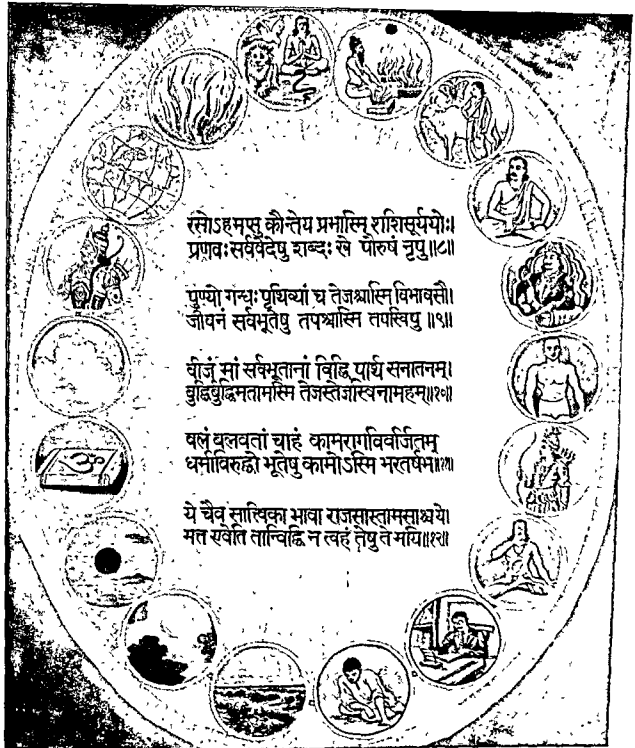 रसोऽहमप्सु कौन्तेय प्रभास्मि शशिसूर्ययोः।
प्रणवः सर्ववेदेषु शब्दः खे पौरुषं नृषु॥८॥
पुण्यो गन्धः पृथिव्यां च तेजश्चास्मि विभावसौ।
जीवनं सर्वभूतेषु तपश्चास्मि तपस्विषु॥९॥
बीजं मां सर्वभूतानां विद्धि पार्थ सनातनम्।
बुद्धिर्बुद्धिमतामस्मि तेजस्तेजस्विनामहम्॥१०॥
बलं बलवतां चाहं कामरागविवर्जितम्
धर्माविरुद्धो भूतेषु कामोऽस्मि भरतर्षभ॥११॥
ये चैव सात्त्विका भावा राजसास्तामसाश्च ये।
मत्त एवेति तान्विद्धि न त्वहं तेषु ते मयि॥१२॥